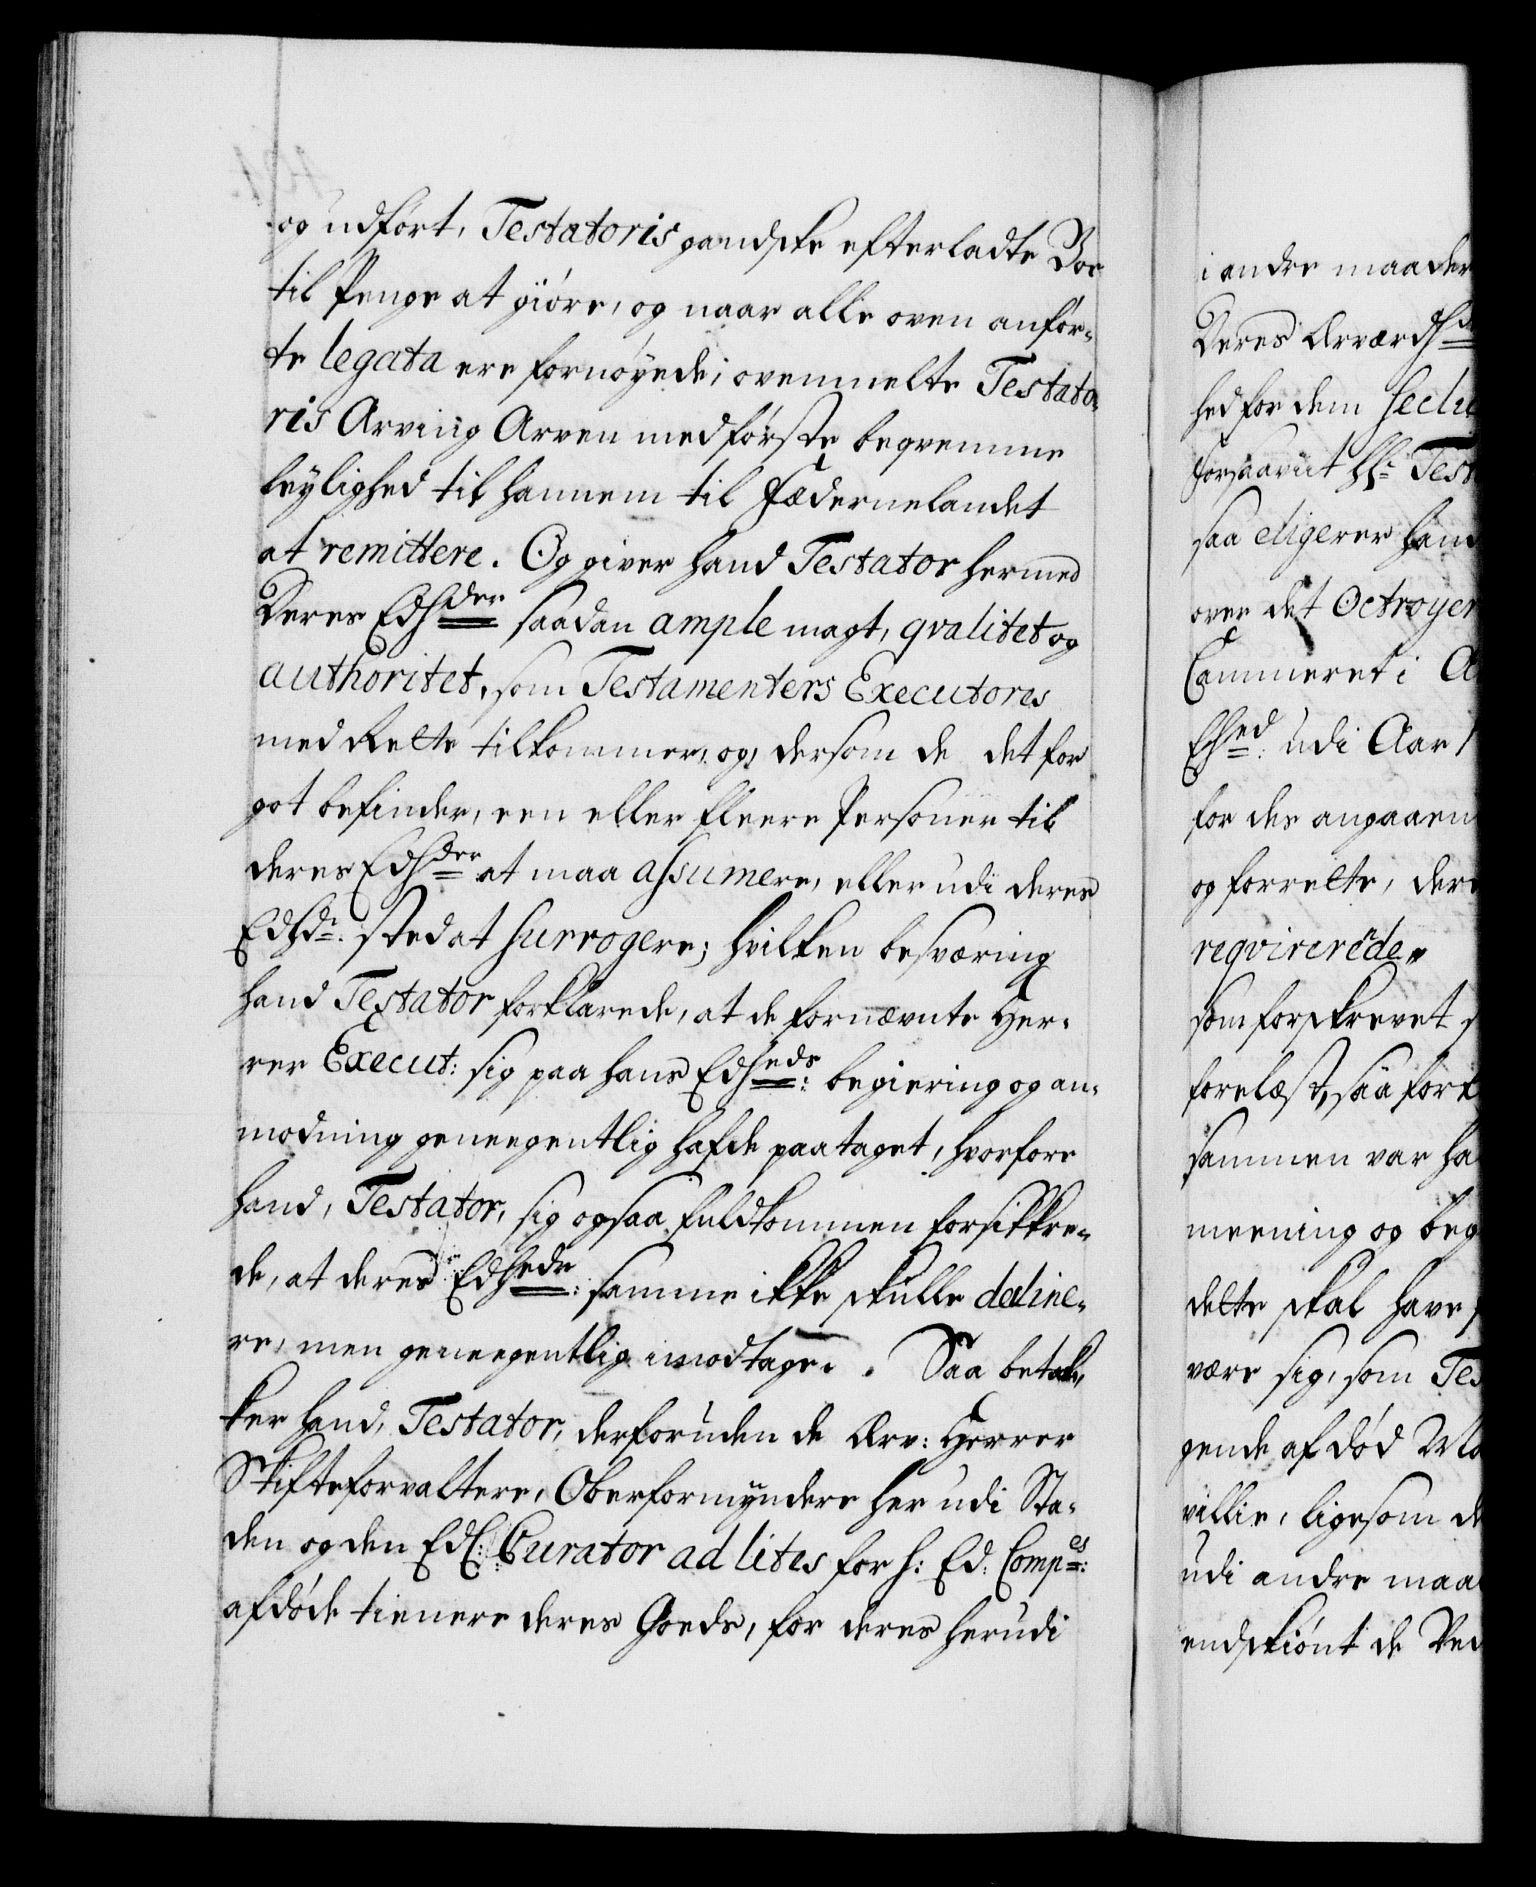 og udført, Testatoris gandske efterladte Boe
til Penge at giøre, og naar alle oven anfør-
te legata ere fornøyede; ovenmelte Testato-
ris Arving Arven med første beqvemme
leylighed til hannem til Fædernelandet
at remittere. Og giver hand Testator hermed
Deres Edhder saadan ample magt, qvalitet og
authoritet, som Testamenters Executores
med Rette tilkommer, og, dersom de det for
got befinder, een eller fleere Personer til
deres Edhder at maa assumere, eller udi deres
Edhdr. sted at surrogere; hvilken besværing
hand Testator forklarede, at de fornævnte Her-
rer Execut: sig paa hans Edheds: begiering og an-
modning geneegentlig hafde paataget, hvorfore
hand, Testator, sig ogsaa fuldkommen forsikkre-
de, at deres Edhedr: samme ikke skulle decline-
re, men geneegentlig imodtage. Saa betak-
ker hand, Testator, derforuden de Ærv: Herrer
Skifteforvaltere, Oberformyndere her udi Sta-
den og den Edl: Curator ad lites for h: Ed: Compes:
afdøde tienere deres Goeds, for deres herudi
i andre maader
Deres Ærværdhd
hed for dem seclu
forsaavit hr. Test
saa eligerer hand
over det Octroyer
Cammeret i A
Ehed: udi Aar 1
for des angaaen
og forrette, der
reqvirerede.
som forskrevet s
forelæst, saa fork
sammen var ha
meening og beg
dette skal have
være sig, som Tes
gende af død
villie, ligesom de
udi andre maa
endskiønt de Ved